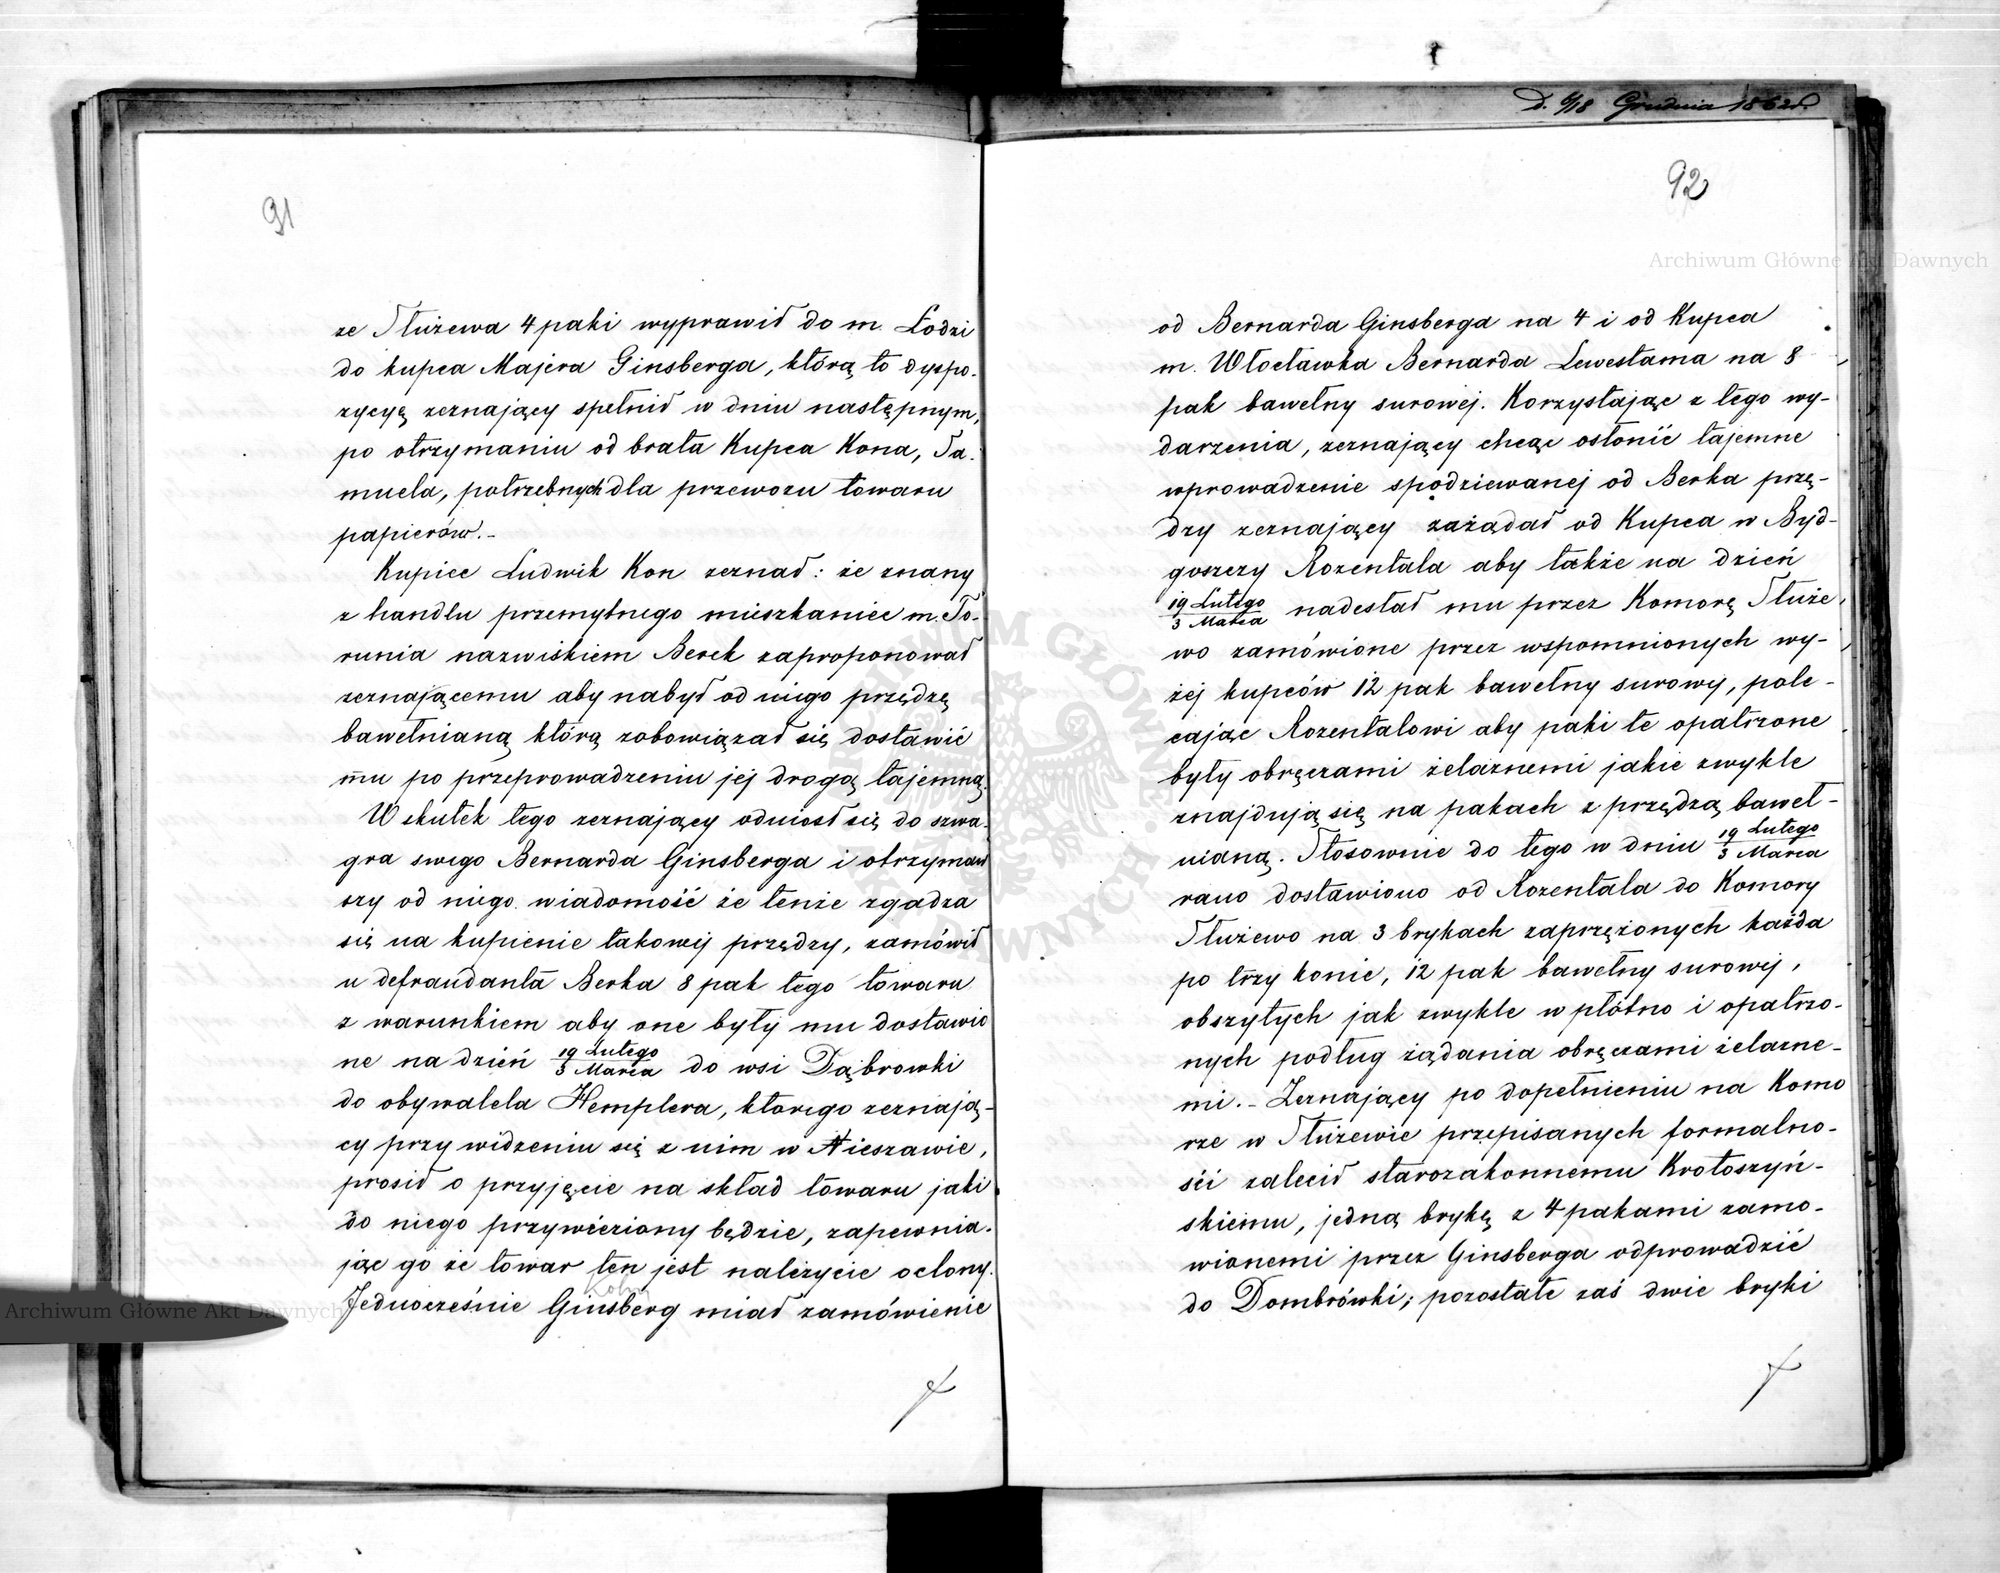 91
ze Służewa 4 paki wyprawił do m. Łodzi
do kupca Majera Ginsberga, którą to dyspo-
zycyę zeznający spełnił w dniu następnym,
po otrzymaniu od brata Kupca Kona, Sa-
muela, potrzebnych dla przewozu towaru
papierów.-
Kupiec Ludwik Kon zeznał: że znany
z handlu przemytnego mieszkaniec m. To-
runia nazwiskiem Berek zaproponował
zeznającemu aby nabył od niego przędzę
bawełnianą którą zobowiązał się dostawić
mu po przeprowadzeniu jej drogą tajemną.
Wskutek tego zeznający odniosł się do szwa-
gra swego Bernarda Ginsberga i otrzymaw
szy od niego wiadomość że tenże zgadza
się na kupienie takowej przędzy, zamówił
u defraudanta Berka 8 pak tego towaru
z warunkiem aby one były mu dostawio
ne na dzień 19 Lutego/3 Marca do wsi Dąbrowki
do obywatela Hemplera, którego zeznają-
cy przy widzeniu się z nim w Nieszawie,
prosił o przyjęcie na skład towaru jaki
do niego przywieziony będzie, zapewnia-
jąc go że towar ten jest należycie oclony.
Jednocześnie Ginsberg miał zamówienie
D. 6/18 Grudnia 1862 r.
92
od Bernarda Ginsberga na 4 i od Kupca
m. Włocławka Bernarda Lewestama na 8
pak bawełny surowej. Korzystając z tego wy-
darzenia, zeznający chcąc osłonić tajemne
wprowadzenie spodziewanej od Berka przę-
dzy zeznający zażądał od Kupca w Byd-
goszczy Rozentala aby także na dzień
19 Lutego/3 Marca nadesłał mu przez Komorę Służe-
wo zamówione przez wspomnionych wy-
żej kupców 12 pak bawełny surowej, pole-
cając Rozentalowi aby paki te opatrzone
były obręczami żelaznemi jakie zwykle
znajdują się na pakach z przędzą baweł-
nianą. Stosownie do tego w dniu 19 Lutego/3 Marca
rano dostawiono od Rozentala do Komory
Służewo na 3 brykach zaprzężonych każda
po trzy konie, 12 pak bawełny surowej,
obszytych jak zwykle w płótno i opatrzo-
nych podług żądania obręczami żelazne-
mi.- Zeznający po dopełnieniu na Komo
rze w Służewie przepisanych formalno-
ści zalecił starozakonnemu Krotoszyń-
skiemu, jedną brykę z 4 pakami zamo-
wionemi przez Ginsberga odprowadzić
do Dombrówki; pozostałe zaś dwie bryki
Archiwum Główne Akt Dawnych
Archiwum Główne Akt Dawnych